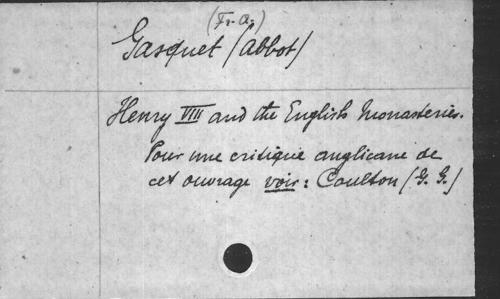 (Fr. A.)
Gasquet (abbot)
Henry VIII and the English Monasteries.
Pour une critique anglicane de
cet ouvrage voir : Coulton (G. G.)